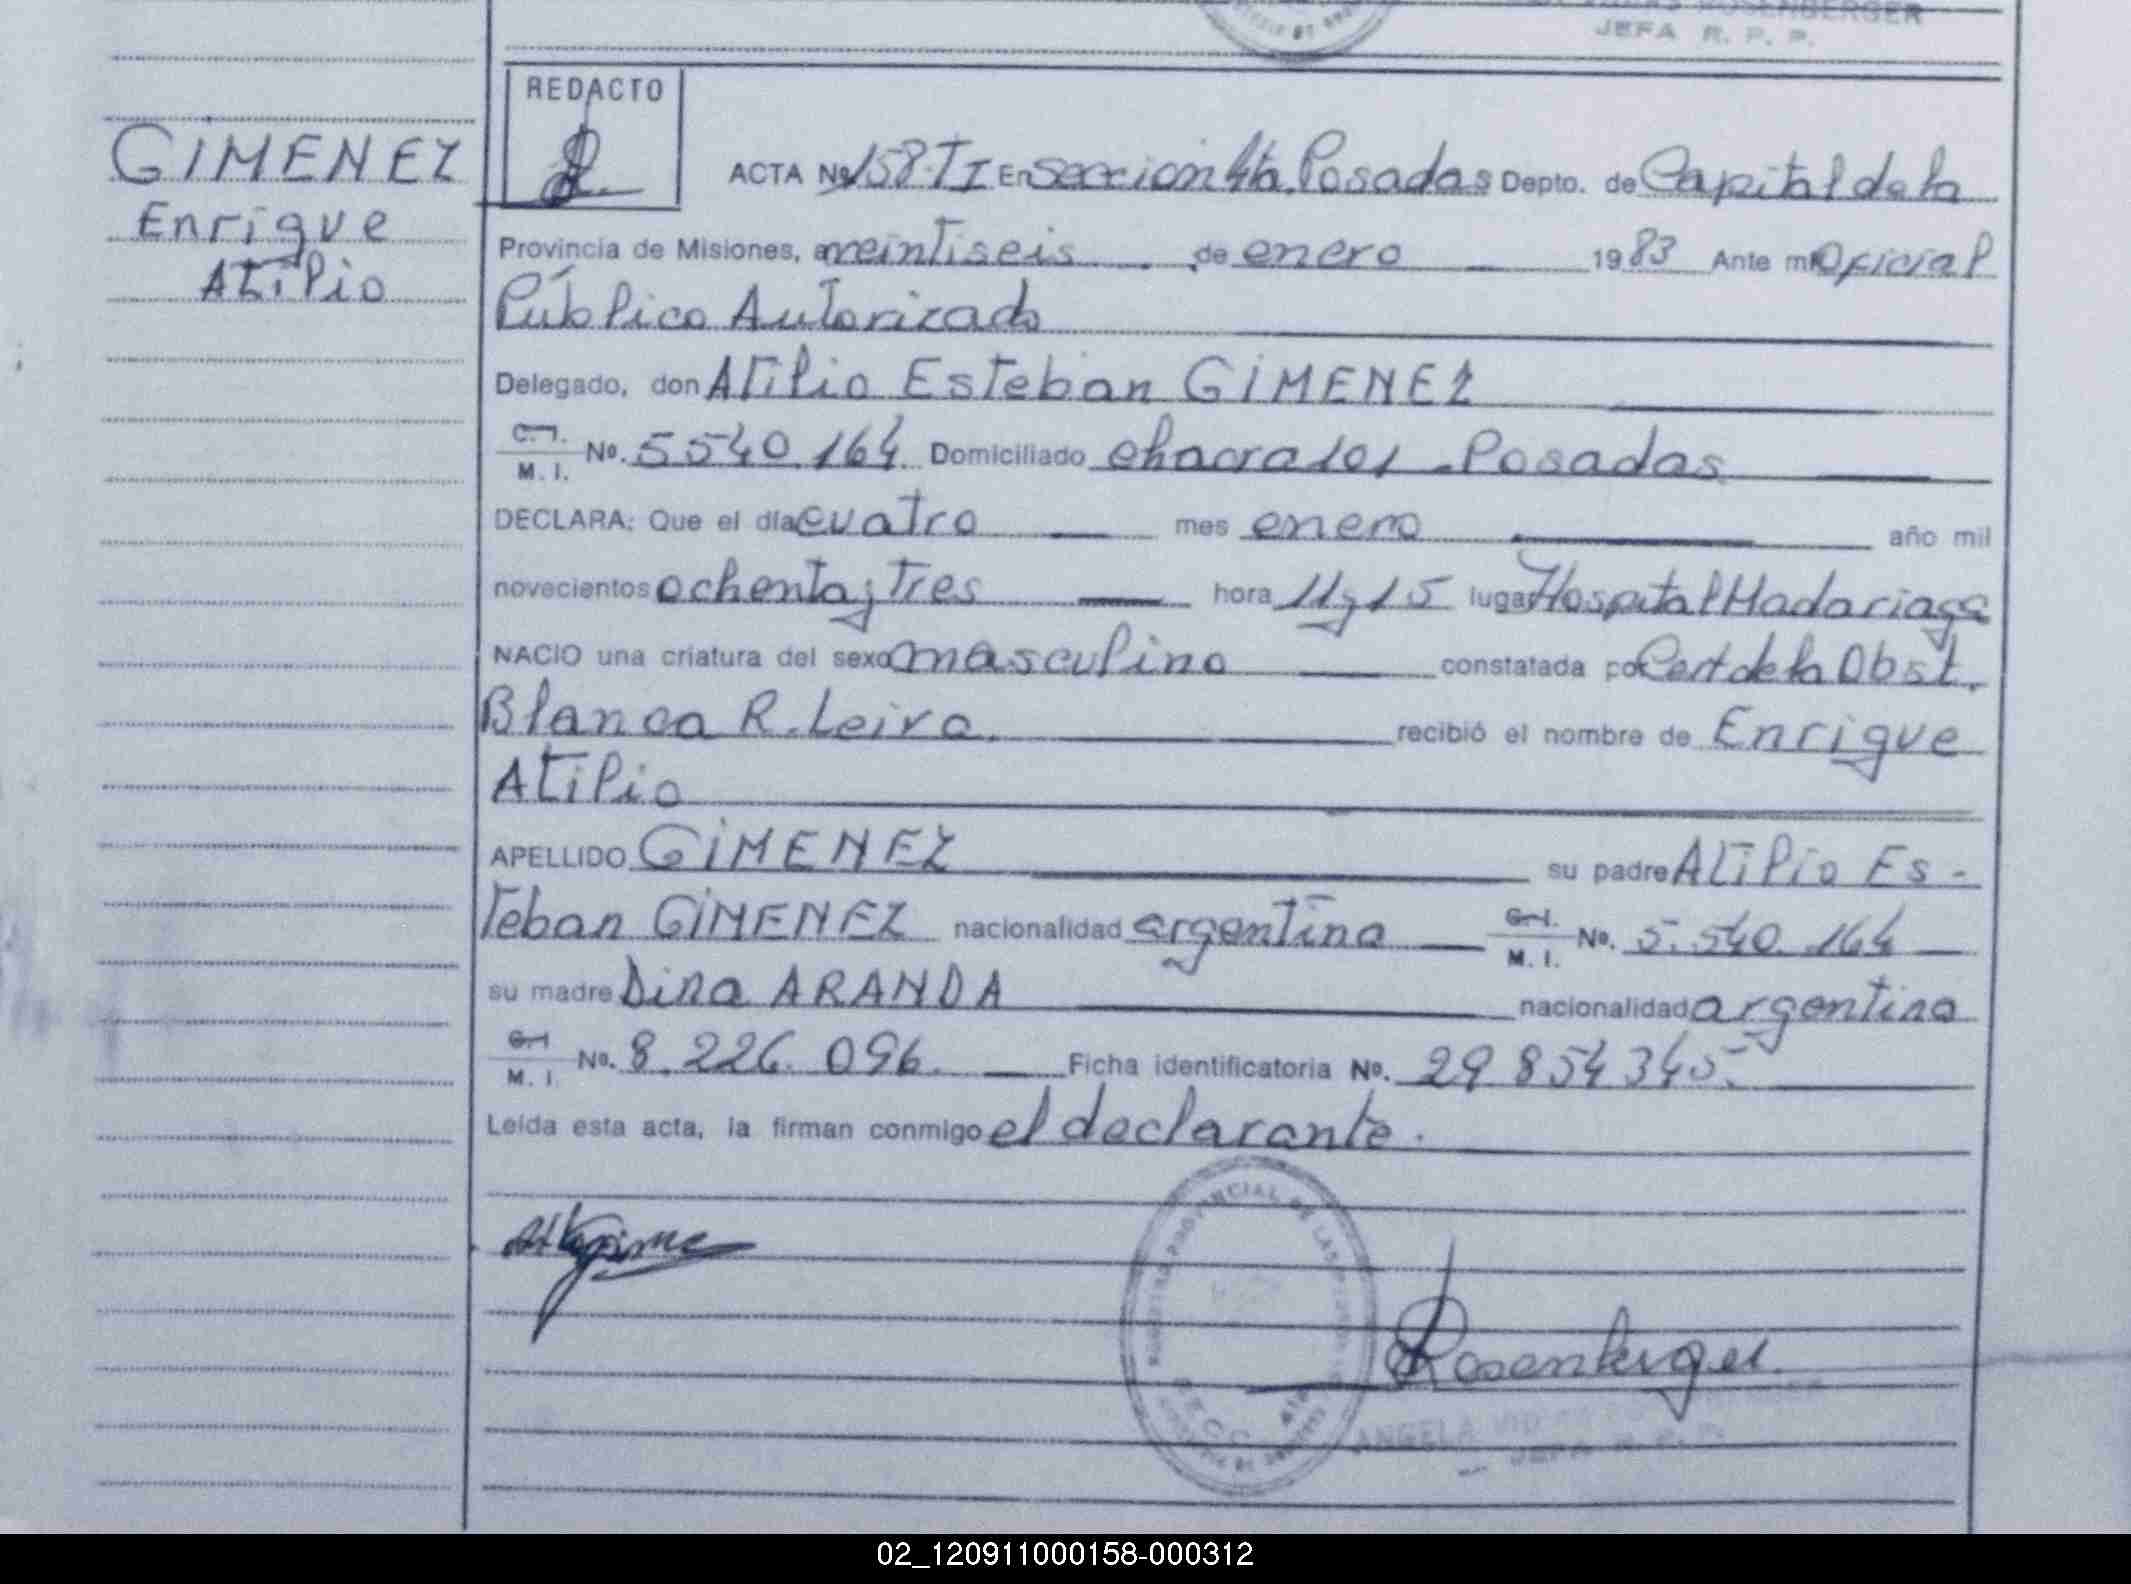 ROSENBERGER
JEFA R. P. P.
REDACTO
GIMENEZ
Enrique
Atilio
ACTA Nº 158-TI En seccion 4ta. Posadas Depto. de Capital de la
Provincia de Misiones, a veintiseis de enero 1983 Ante mi Oficial
Público Autorizado
Delegado, don Atilio Esteban GIMENEZ
C.I. M. I. No. 5540.164 Domiciliado chacra 101 - Posadas
DECLARA: Que el día cuatro mes enero año mil
novecientos ochenta y Tres hora 11 y 15 lugar Hospital Madariaga
NACIO una criatura del sexo masculino constatada por Cert de la Obst.
Blanca R. Leiva. recibió el nombre de Enrique
Atilio
APELLIDO GIMENEZ su padre Atilio Es-
teban GIMENEZ nacionalidad argentina C.I. M. I. No. 5.540.164
su madre Dina ARANDA nacionalidad argentina
C.I M. I. No. 8.226.096. Ficha identificatoria No. 29 854 345
Leída esta acta, la firman conmigo el declarante.
PROVINCIAL DE LAS
Rosenberger
ANGELA
JEFA R. P. P.
02_120911000158-000312